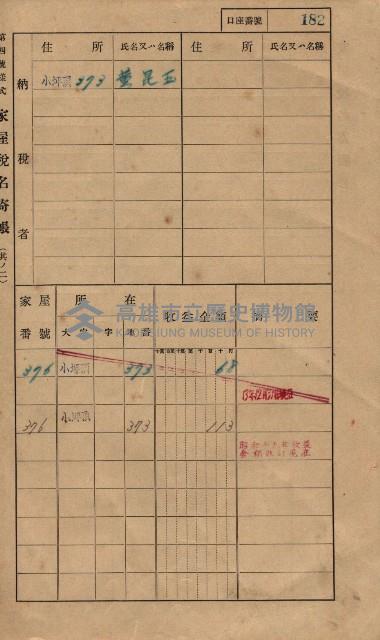 口座番號 182
第四號樣式 家屋稅名寄帳 (其ノ二)
住所 氏名又ハ名稱 住所 氏名又ハ名稱
納稅者
小坪頂 373 黃昆玉
家屋番號 所在 大字 字 地番 收益金額 摘要
高雄市立歷史博物館
KAOHSIUNG MUSEUM OF HISTORY
376 小坪頂 373 68
376 小坪頂 373 113